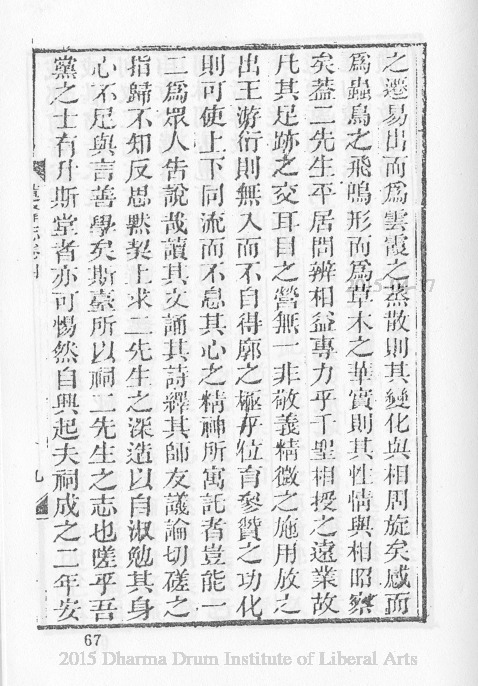 之遷易出而爲雲霞之蒸散則其變化與相周旋矣感而
爲蟲鳥之飛鳴形而爲草木之華實則其性情與相昭察
矣葢二先生平居問辨相益專力乎千聖相授之遠業故
凡其足跡之交耳目之營無一非敬義精微之施用放之
出王游衍則無入而不自得廓之極乎位育參贊之功化
則可使上下同流而不息其心之精神所寓託者豈能一
二爲眾人告說哉讀其文誦其詩繹其師友議論切磋之
指歸不知反思默契上求二先生之深造以自淑勉其身
心不足與言善學矣斯臺所以祠二先生之志也嗟乎吾
黨之士有升斯堂者亦可惕然自興起夫祠成之二年安
九
67
2015 Dharma Drum Institute of Liberal Arts